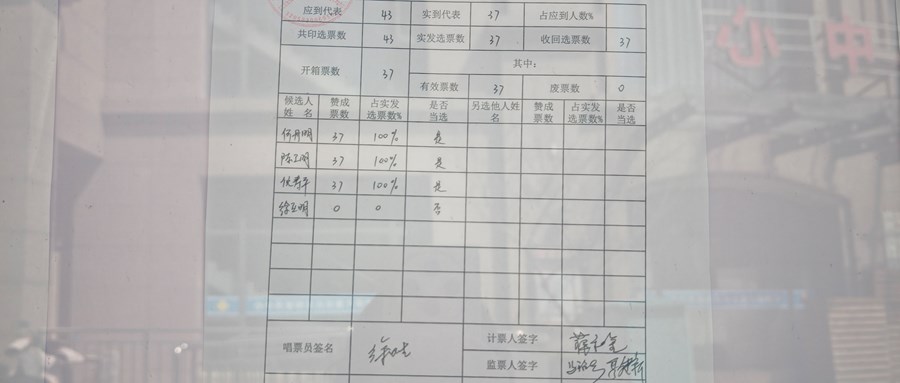 应到代表 43 实到代表 37 占应到人数%
共印选票数 43 实发选票数 37 收回选票数 37
开箱票数 37 其中:
有效票数 37 废票数 0
候选人姓名 赞成票数 占实发选票数% 是否当选 另选他人姓名 赞成票数 占实发选票数% 是否当选
何丹明 37 100% 是
37 100% 是
37 100% 是
徐亚明 0 0 否
唱票员签名 计票人签字
监票人签字
中心